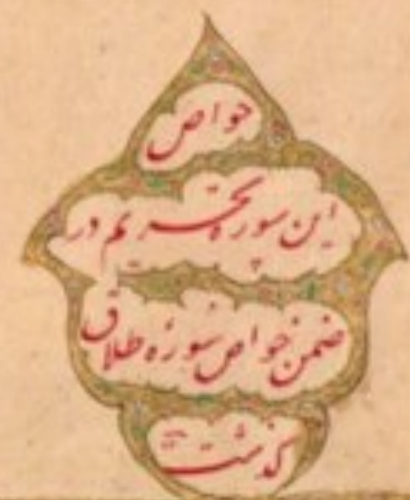 خواص
این سوره تحریم در
ضمن خواص سوره طلاق
گذشت